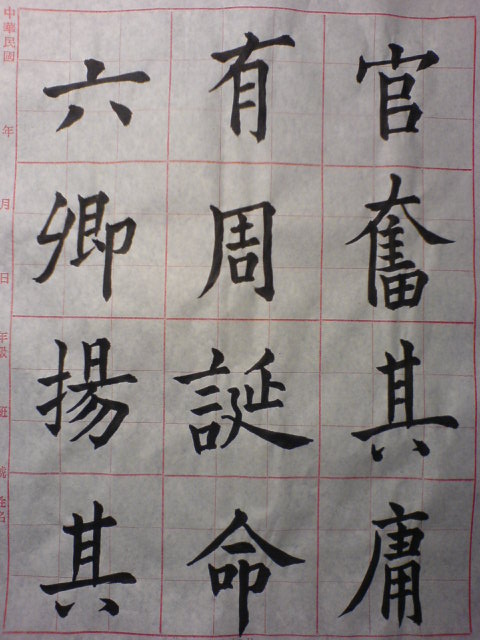 官奮其庸
有周誕命
六卿揚其
中華民國 年 月 日 年級 班 號 姓名